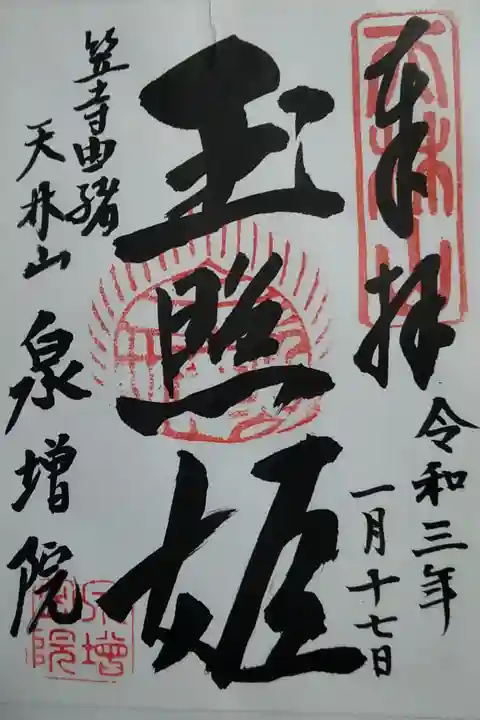 奉拝
令和三年
一月十七日
玉照姫
笠寺由緒
天林山
泉増院
天林山
泉増院